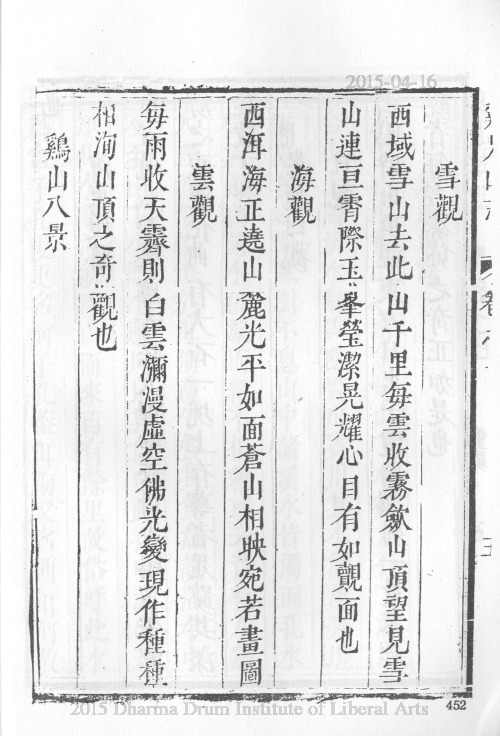 2015-04-16
雪觀
西域雪山去此山千里每雲收霧歛山頂望見雪
山連亘霄際玉峯瑩潔晃耀心目有如覿面也
海觀
西洱海正遶山麓光平如面蒼山相映宛若畫圖
雲觀
每雨收天霽則白雲瀰漫虛空佛光變現作種種
相洵山頂之奇觀也
鷄山八景
452
2015 Dharma Drum Institute of Liberal Arts